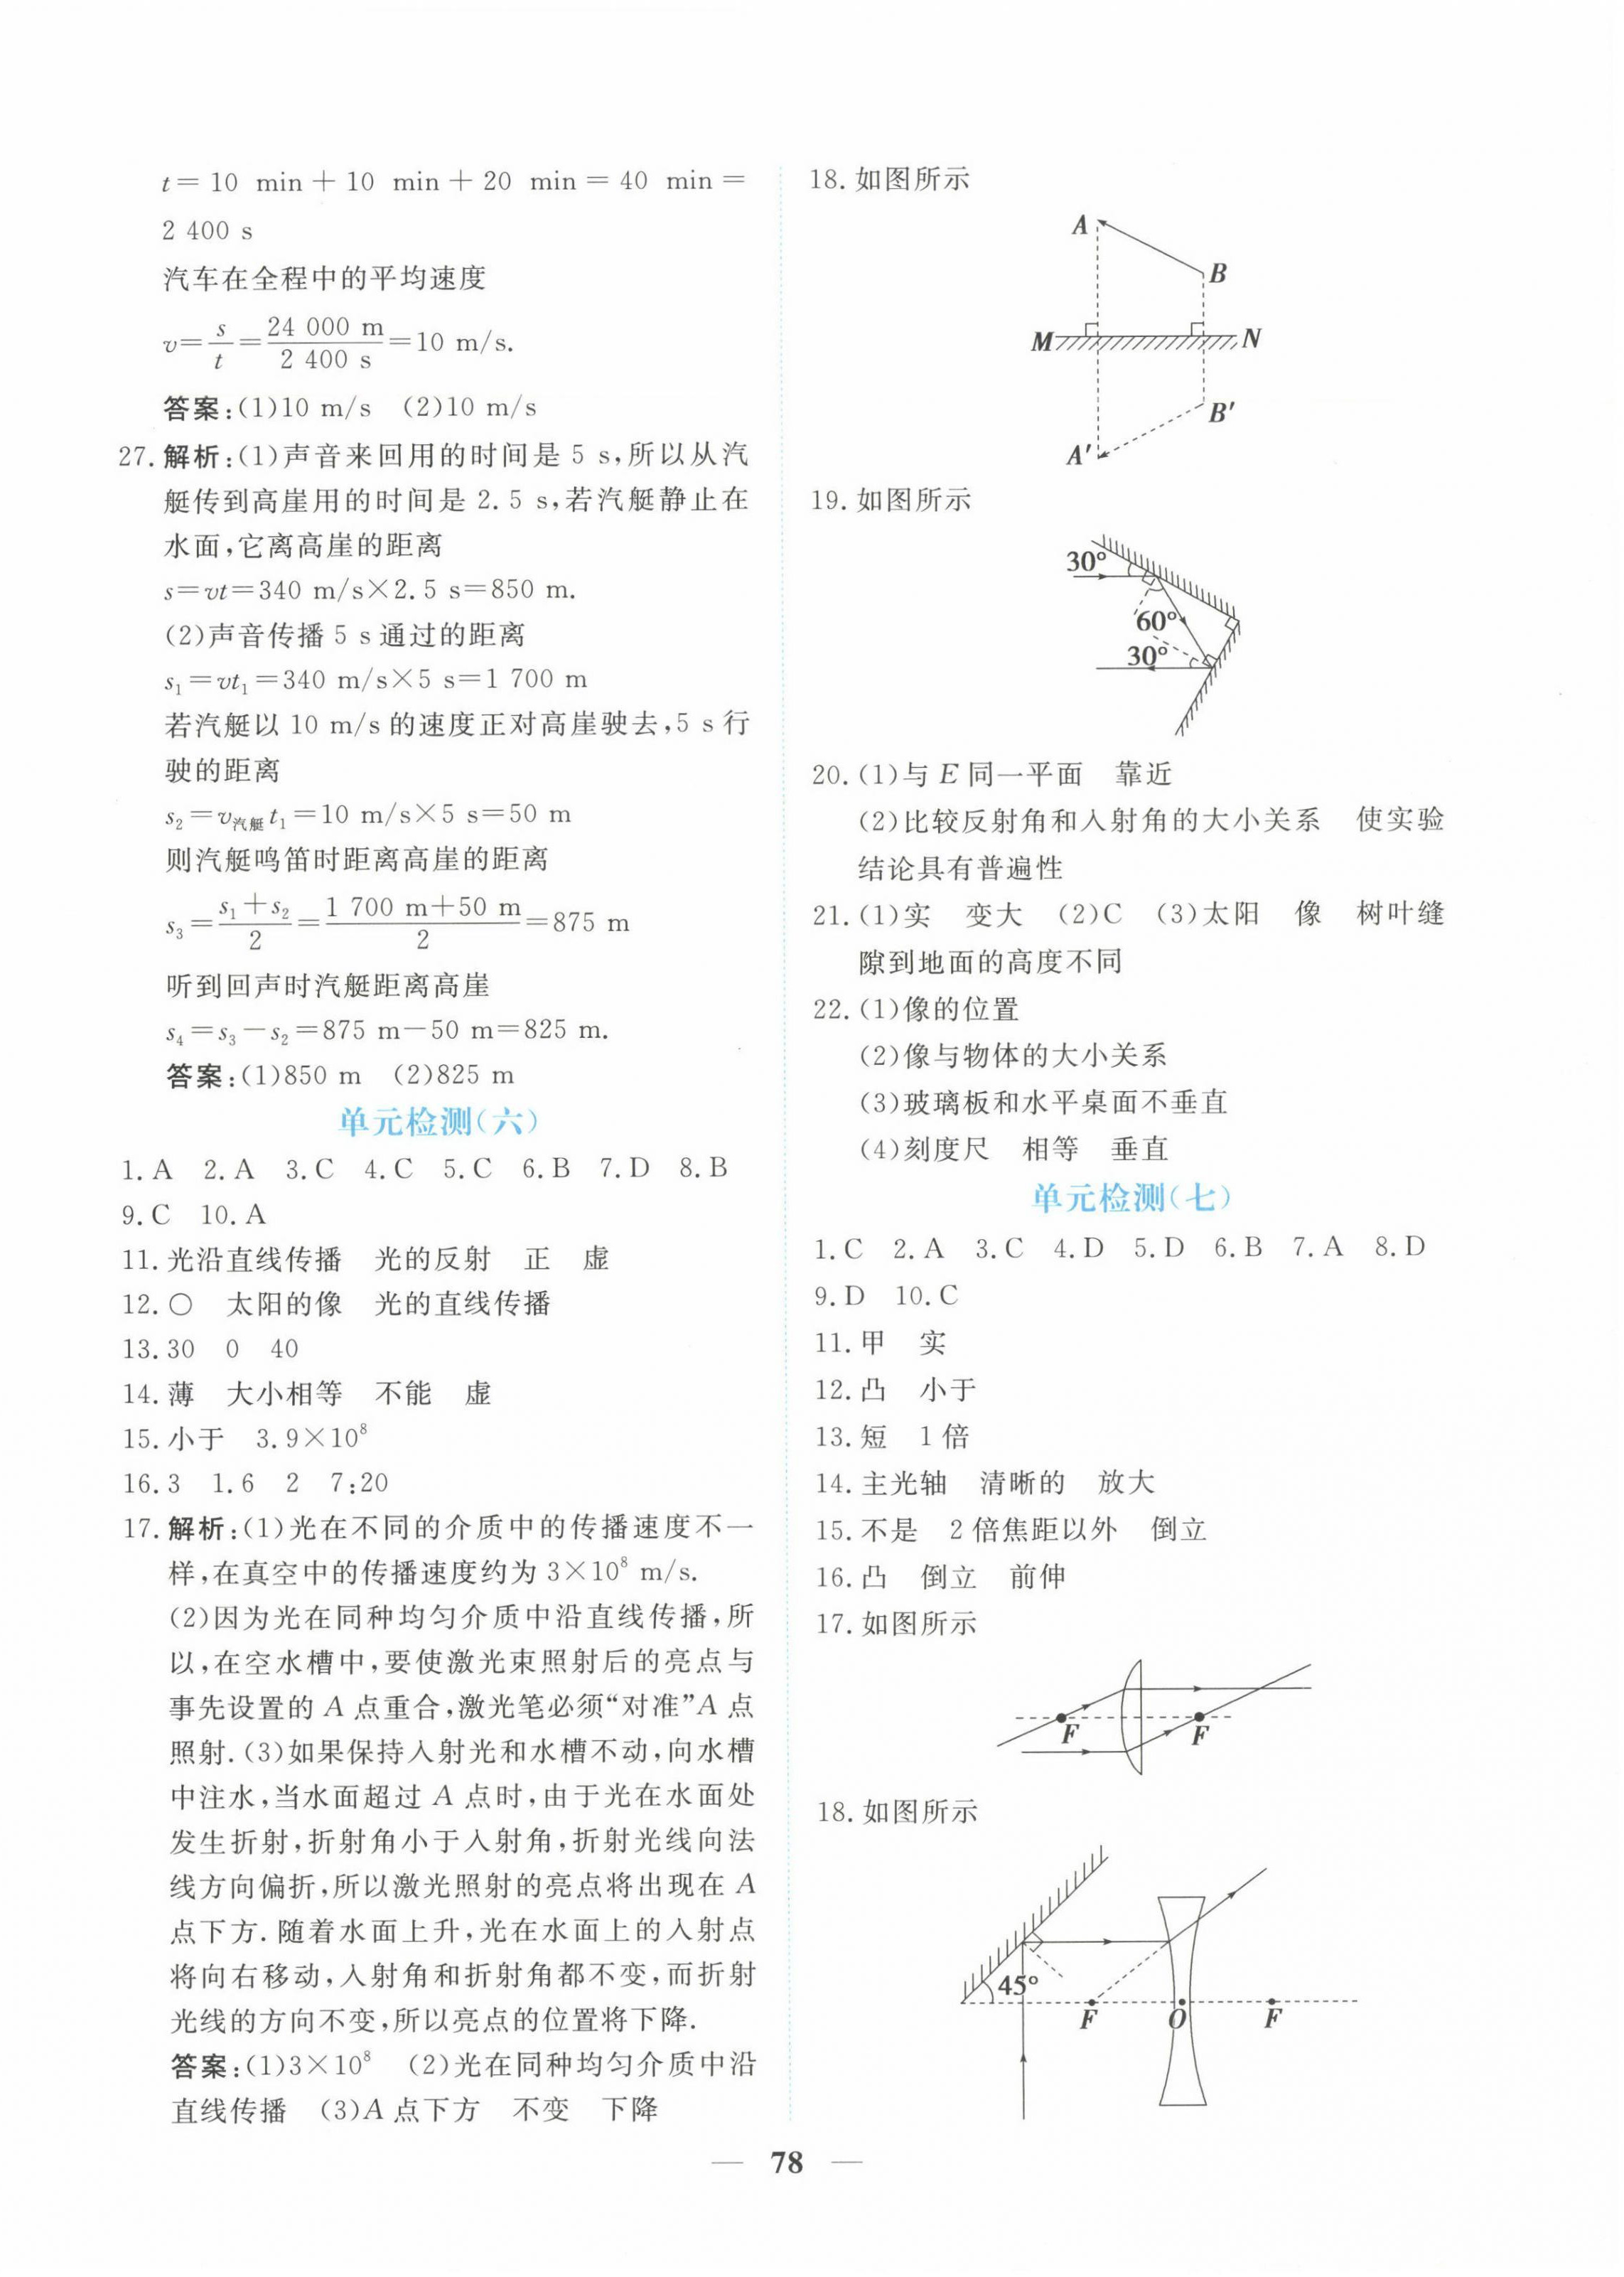 t＝10 min＋10 min＋20 min＝40 min＝
2 400 s
汽车在全程中的平均速度
v＝s/t＝24 000 m/2 400 s＝10 m/s.
答案:(1)10 m/s (2)10 m/s
27.解析:(1)声音来回用的时间是 5 s,所以从汽
艇传到高崖用的时间是 2.5 s,若汽艇静止在
水面,它离高崖的距离
s＝vt＝340 m/s×2.5 s＝850 m.
(2)声音传播 5 s 通过的距离
s₁＝vt₁＝340 m/s×5 s＝1 700 m
若汽艇以 10 m/s 的速度正对高崖驶去,5 s 行
驶的距离
s₂＝v汽艇t₁＝10 m/s×5 s＝50 m
则汽艇鸣笛时距离高崖的距离
s₃＝(s₁＋s₂)/2＝(1 700 m＋50 m)/2＝875 m
听到回声时汽艇距离高崖
s₄＝s₃－s₂＝875 m－50 m＝825 m.
答案:(1)850 m (2)825 m
单元检测(六)
1.A 2.A 3.C 4.C 5.C 6.B 7.D 8.B
9.C 10.A
11.光沿直线传播 光的反射 正 虚
12.○ 太阳的像 光的直线传播
13.30 0 40
14.薄 大小相等 不能 虚
15.小于 3.9×10⁸
16.3 1.6 2 7:20
17.解析:(1)光在不同的介质中的传播速度不一
样,在真空中的传播速度约为 3×10⁸ m/s.
(2)因为光在同种均匀介质中沿直线传播,所
以,在空水槽中,要使激光束照射后的亮点与
事先设置的 A 点重合,激光笔必须“对准”A 点
照射.(3)如果保持入射光和水槽不动,向水槽
中注水,当水面超过 A 点时,由于光在水面处
发生折射,折射角小于入射角,折射光线向法
线方向偏折,所以激光照射的亮点将出现在 A
点下方.随着水面上升,光在水面上的入射点
将向右移动,入射角和折射角都不变,而折射
光线的方向不变,所以亮点的位置将下降.
答案:(1)3×10⁸ (2)光在同种均匀介质中沿
直线传播 (3)A 点下方 不变 下降
18.如图所示
A
B
M
N
B′
A′
19.如图所示
30°
60°
30°
20.(1)与 E 同一平面 靠近
(2)比较反射角和入射角的大小关系 使实验
结论具有普遍性
21.(1)实 变大 (2)C (3)太阳 像 树叶缝
隙到地面的高度不同
22.(1)像的位置
(2)像与物体的大小关系
(3)玻璃板和水平桌面不垂直
(4)刻度尺 相等 垂直
单元检测(七)
1.C 2.A 3.C 4.D 5.D 6.B 7.A 8.D
9.D 10.C
11.甲 实
12.凸 小于
13.短 1 倍
14.主光轴 清晰的 放大
15.不是 2 倍焦距以外 倒立
16.凸 倒立 前伸
17.如图所示
F F
18.如图所示
45°
F O F
— 78 —